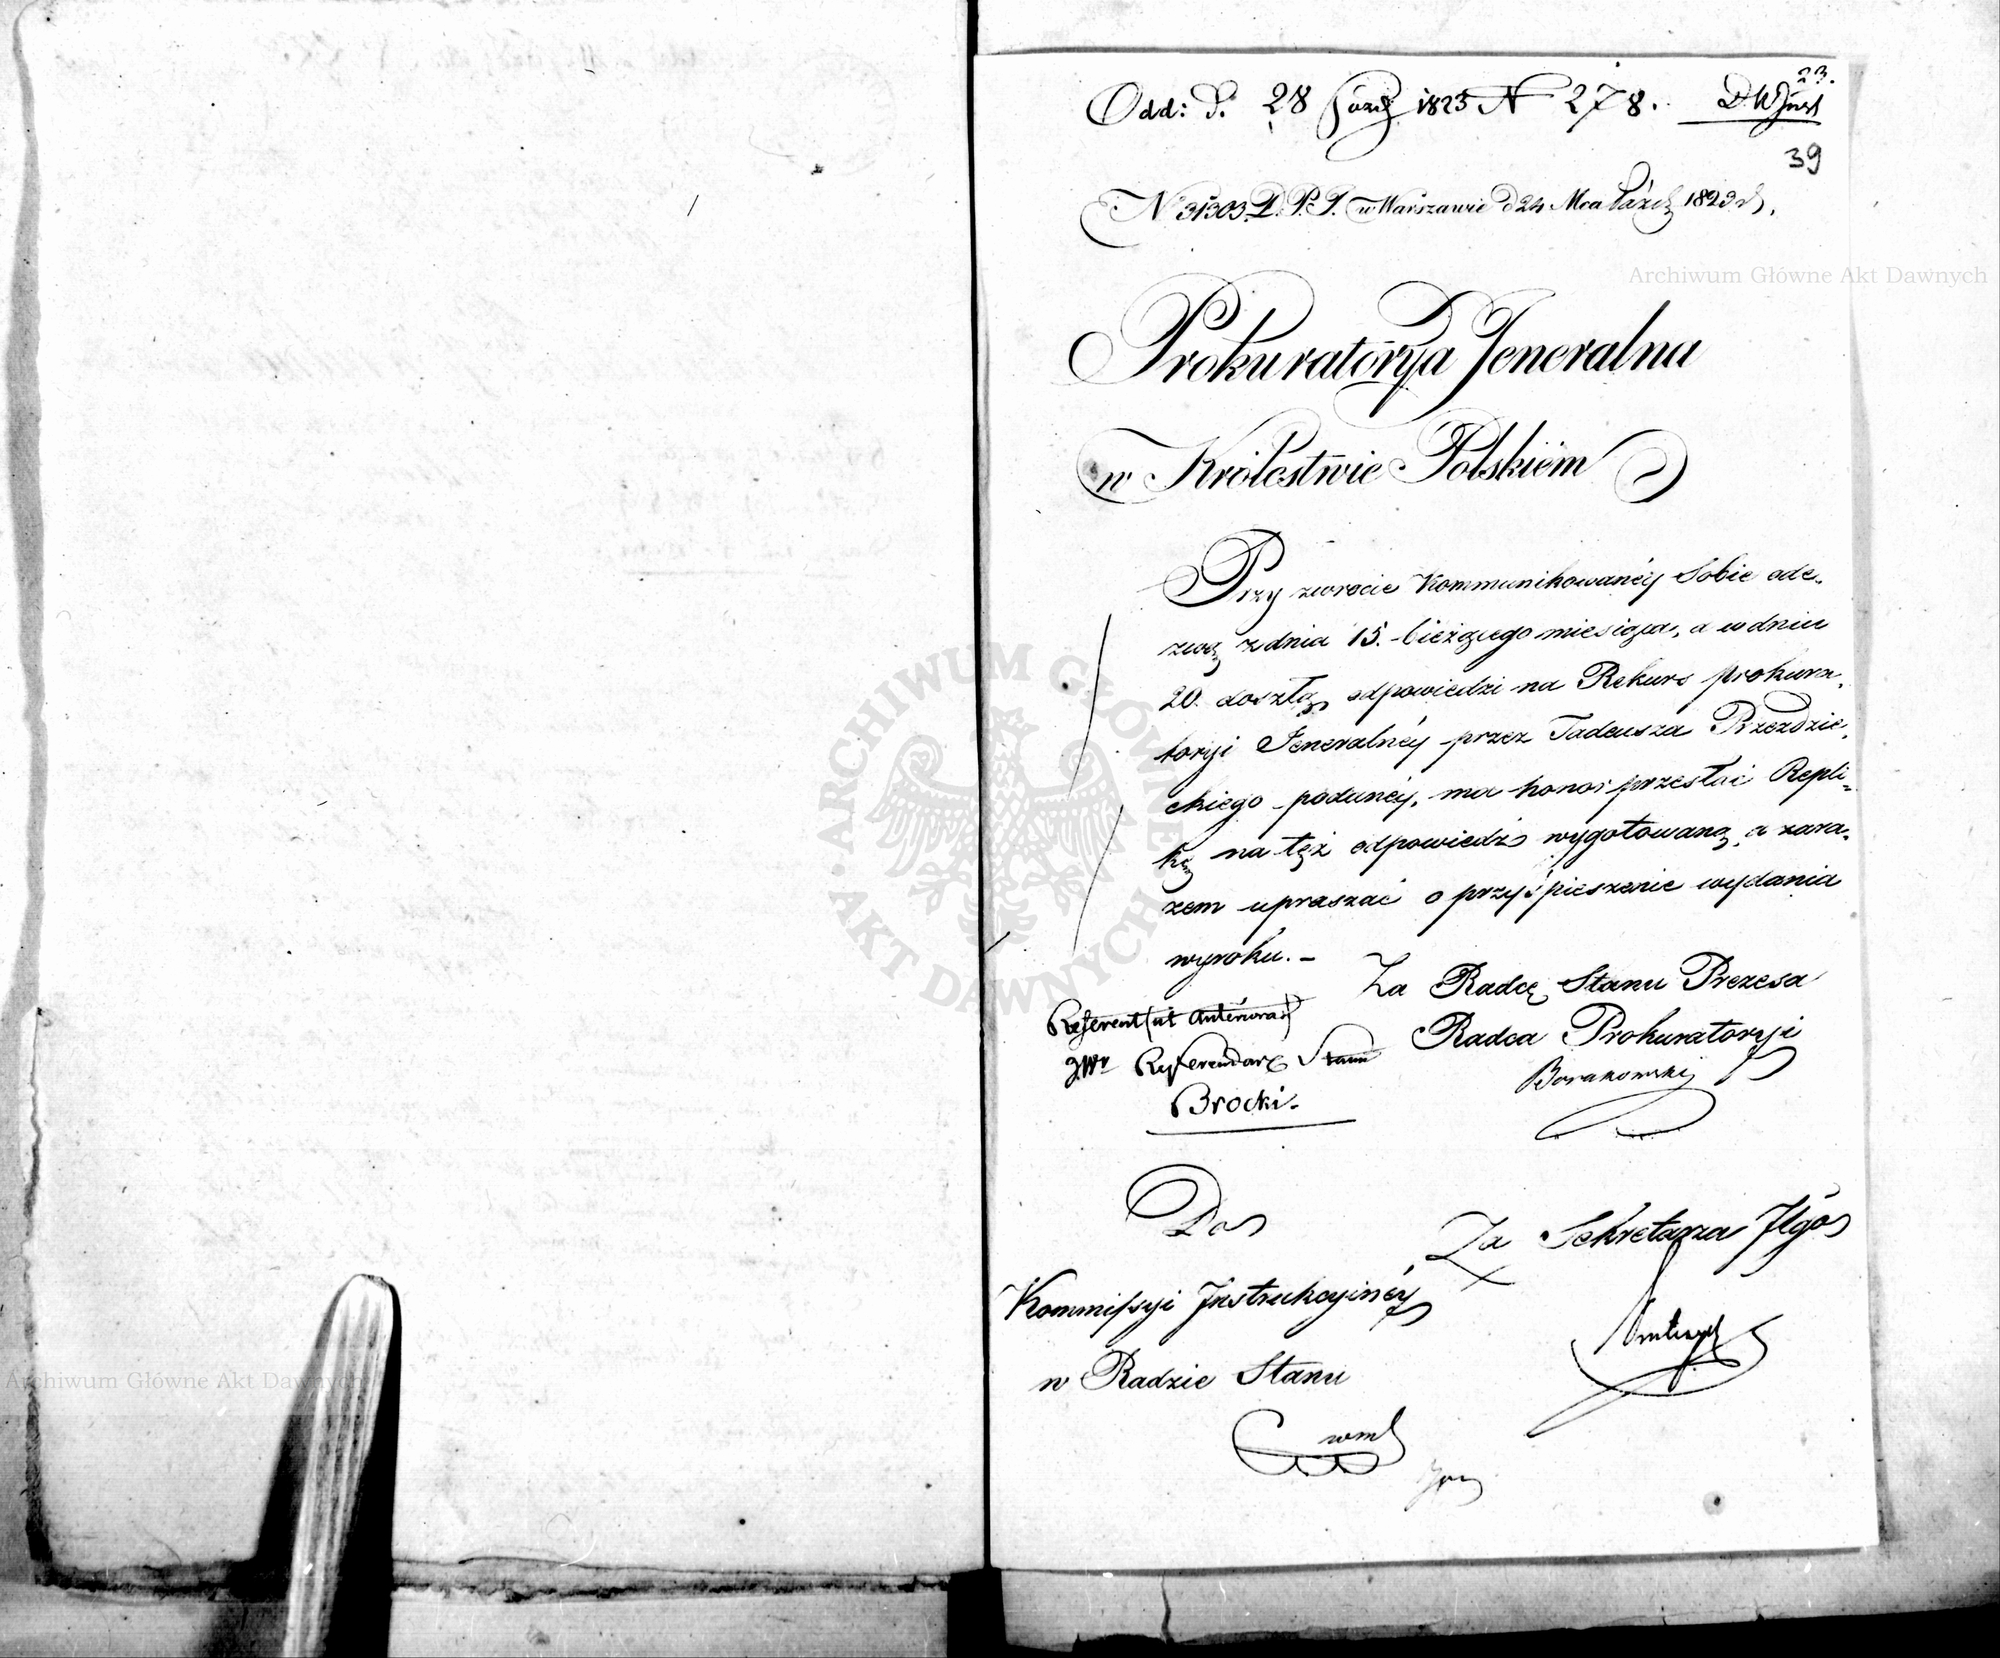 23.
Odd: d. 28 Paźdz 1823 N 278. D.W. Just
39
N 31303. D. P. J. w Warszawie d 24 Mca Paźdz 1823 r.
Archiwum Główne Akt Dawnych
Prokuratorya Jeneralna
w Królestwie Polskiém
Przy zwrocie Kommunikowanéy Sobie ode-
zwą z dnia 15. bieżącego miesiąca, a w dniu
20. doszłą, odpowiedzi na Rekurs prokura-
toryi Jeneralnéy przez Tadeusza Przeździe-
ckiego podanéy, ma honor przesłać Repli-
kę na tęż odpowiedź wygotowaną, a zara-
zem upraszać o przyśpieszenie wydania
wyroku. -
Za Radcę Stanu Prezesa
Radca Prokuratoryi
Referent (ut anteriora)
JWr Referendarz Stanu
Brocki.
Do
Za Sekretarza Jlgo
Kommissyi Instrukcyinéy
w Radzie Stanu
ARCHIWUM GŁÓWNE AKT DAWNYCH
Archiwum Główne Akt Dawnych